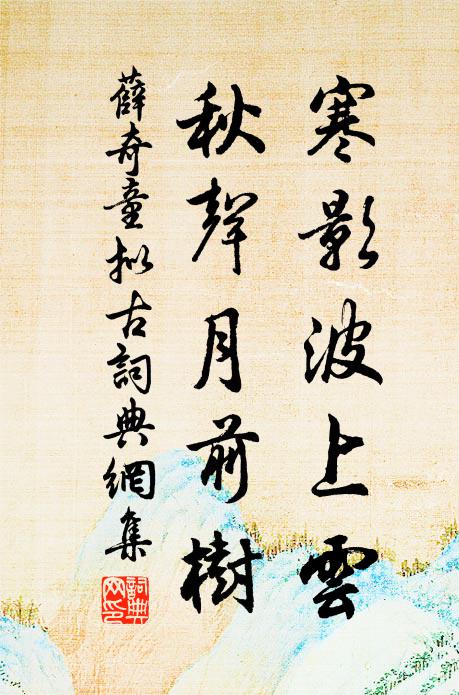 寒影波上雲
秋聲月前樹
薛奇童拟古詞典網集
詞典網印